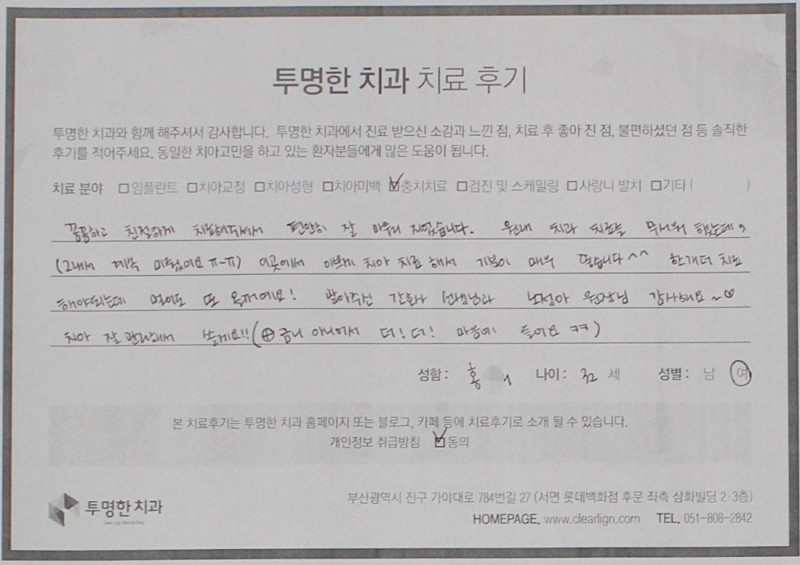 투명한 치과 치료 후기
투명한 치과와 함께 해주셔서 감사합니다. 투명한 치과에서 진료 받으신 소감과 느낀 점, 치료 후 좋아 진 점, 불편하셨던 점 등 솔직한
후기를 적어주세요. 동일한 치아고민을 하고 있는 환자분들에게 많은 도움이 됩니다.
치료 분야 □임플란트 □치아교정 □치아성형 □치아미백 ☑충치치료 □검진 및 스케일링 □사랑니 발치 □기타 ( )
꼼꼼하고 친절하게 치료해주셔서 편안히 잘 마무리 지었습니다. 원래 치과 치료를 무서워 했는데,
(그래서 계속 미뤘어요 ㅠ-ㅠ) 이곳에서 이쁘게 치아 치료 해서 기분이 매우 좋습니다^^ 한개더 치료
해야되는데 또 올게요! 간호사 선생님과 노정아 원장님 감사해요~♡
치아 잘 관리해서 쓸게요!! (⊕금니 아니어서 더! 더! 마음에 들어요 ㅋㅋ)
성함: 홍 나이: 세 성별: 남 여
본 치료후기는 투명한 치과 홈페이지 또는 블로그, 카페 등에 치료후기로 소개 될 수 있습니다.
개인정보 취급방침 ☑동의
투명한 치과
부산광역시 진구 가야대로 784번길 27 (서면 롯데백화점 후문 좌측 삼화빌딩 2·3층)
HOMEPAGE. www.clearlign.com TEL. 051-808-2842